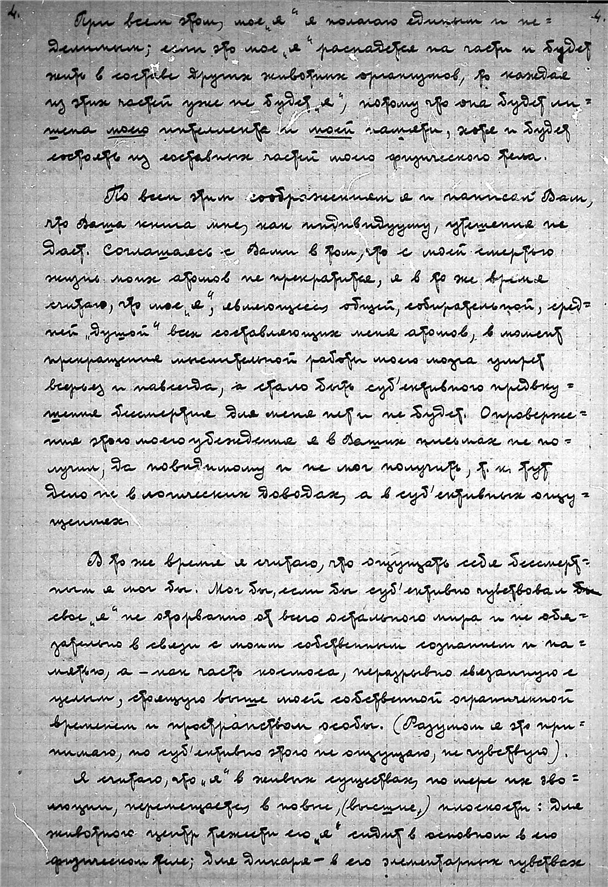 4. 4.
При всем этом, мое „я“ я полагаю единым и не=
делимым; если это мое „я“ распадется на части и будет
жить в составе других животных организмов, то каждая
из этих частей уже не будет „я“, потому что она будет ли=
шена моего интеллекта и моей памяти, хотя и будет
состоять из составных частей моего физического тела.
По всем этим соображениям я и написал Вам,
что Ваша книга мне, как индивидууму, утешения не
даст. Соглашаясь с Вами в том, что с моей смертью
жизнь моих атомов не прекратится, я в то же время
считаю, что мое „я“, являющееся общей, собирательной, сред=
ней „душой“ всех составляющих меня атомов, в момент
прекращения мыслительной работы моего мозга умрет
всерьез и навсегда, а стало быть суб'ективного предвку=
шения бессмертия для меня нет и не будет. Опроверже=
ния этого моего убеждения я в Ваших письмах не по=
лучил, да повидимому и не мог получить, т. к. тут
дело не в логических доводах, а в суб'ективных ощу=
щениях.
В то же время я считаю, что ощущать себя бессмерт=
ным я мог бы. Мог бы, если бы суб'ективно чувствовал бы
свое „я“ не оторванно от всего остального мира и не обя=
зательно в связи с моим собственным сознанием и па=
мятью, а – как часть космоса, неразрывно связанную с
целым, стоящую выше моей собственной ограниченной
временем и пространством особы. (Разумом я это при=
нимаю, но суб'ективно этого не ощущаю, не чувствую).
Я считаю, что „я“ в живых существах, по мере их эво=
люции, перемещается в новые, (высшие,) плоскости: для
животного центр тяжести его „я“ сидит в основном в его
физическом теле; для дикаря – в его элементарных чувствах